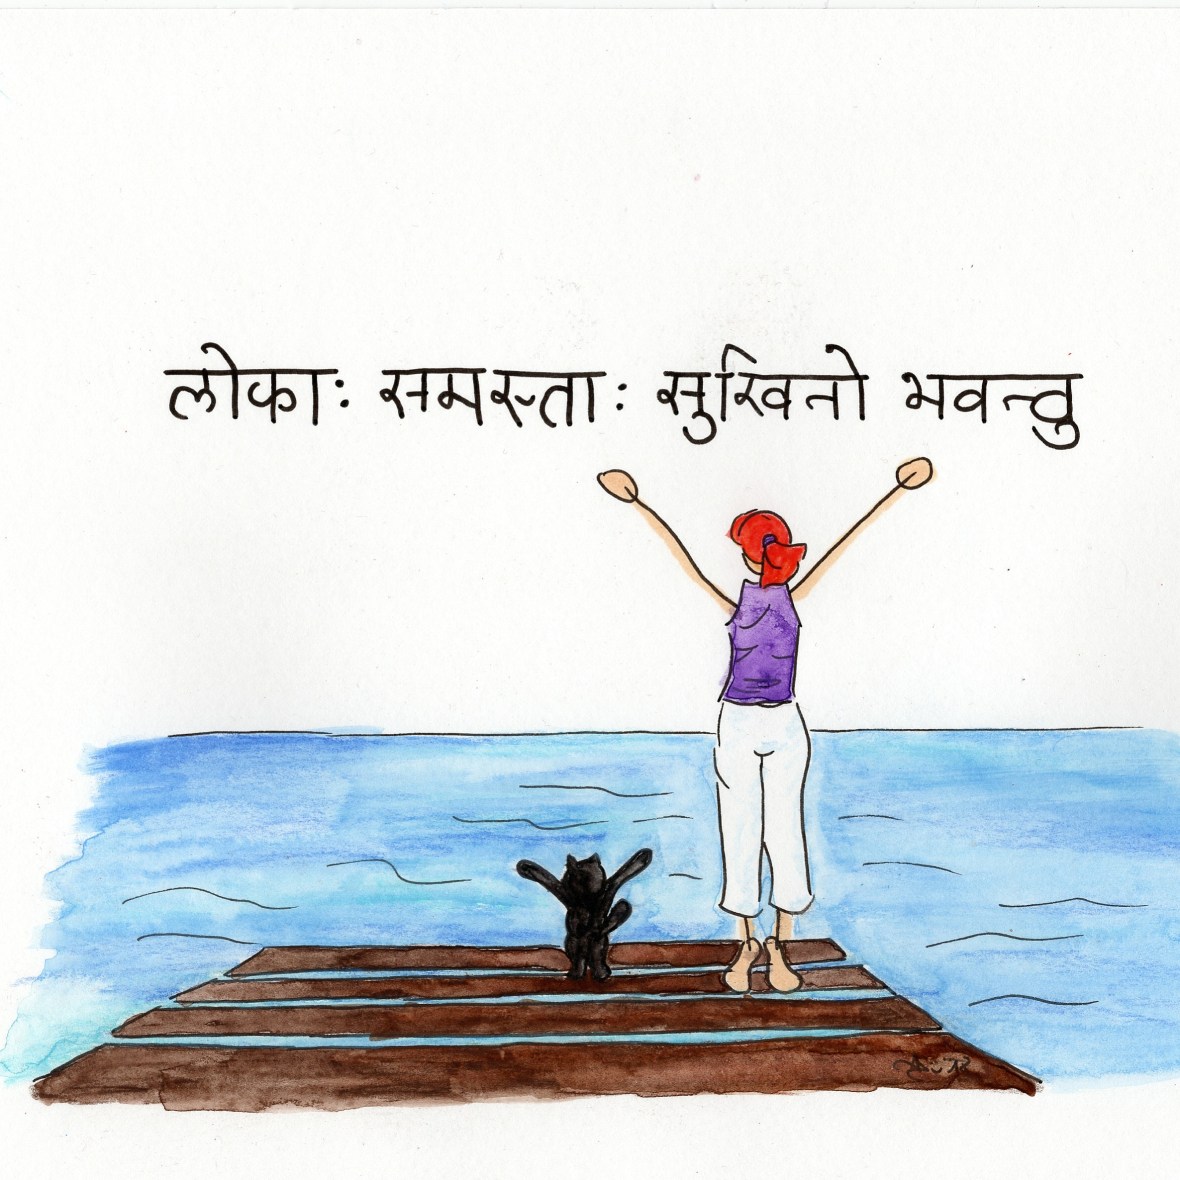 लोकाः समस्ताः सुखिनो भवन्तु